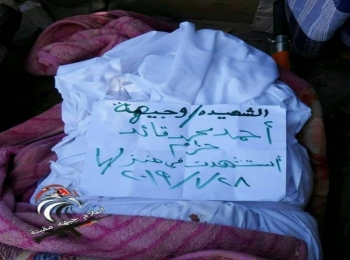 الشهيده/وجيهة
أحمد محمد قائد
خادم
استشهدت في منزلها
٢٠١٩/١/٢٨